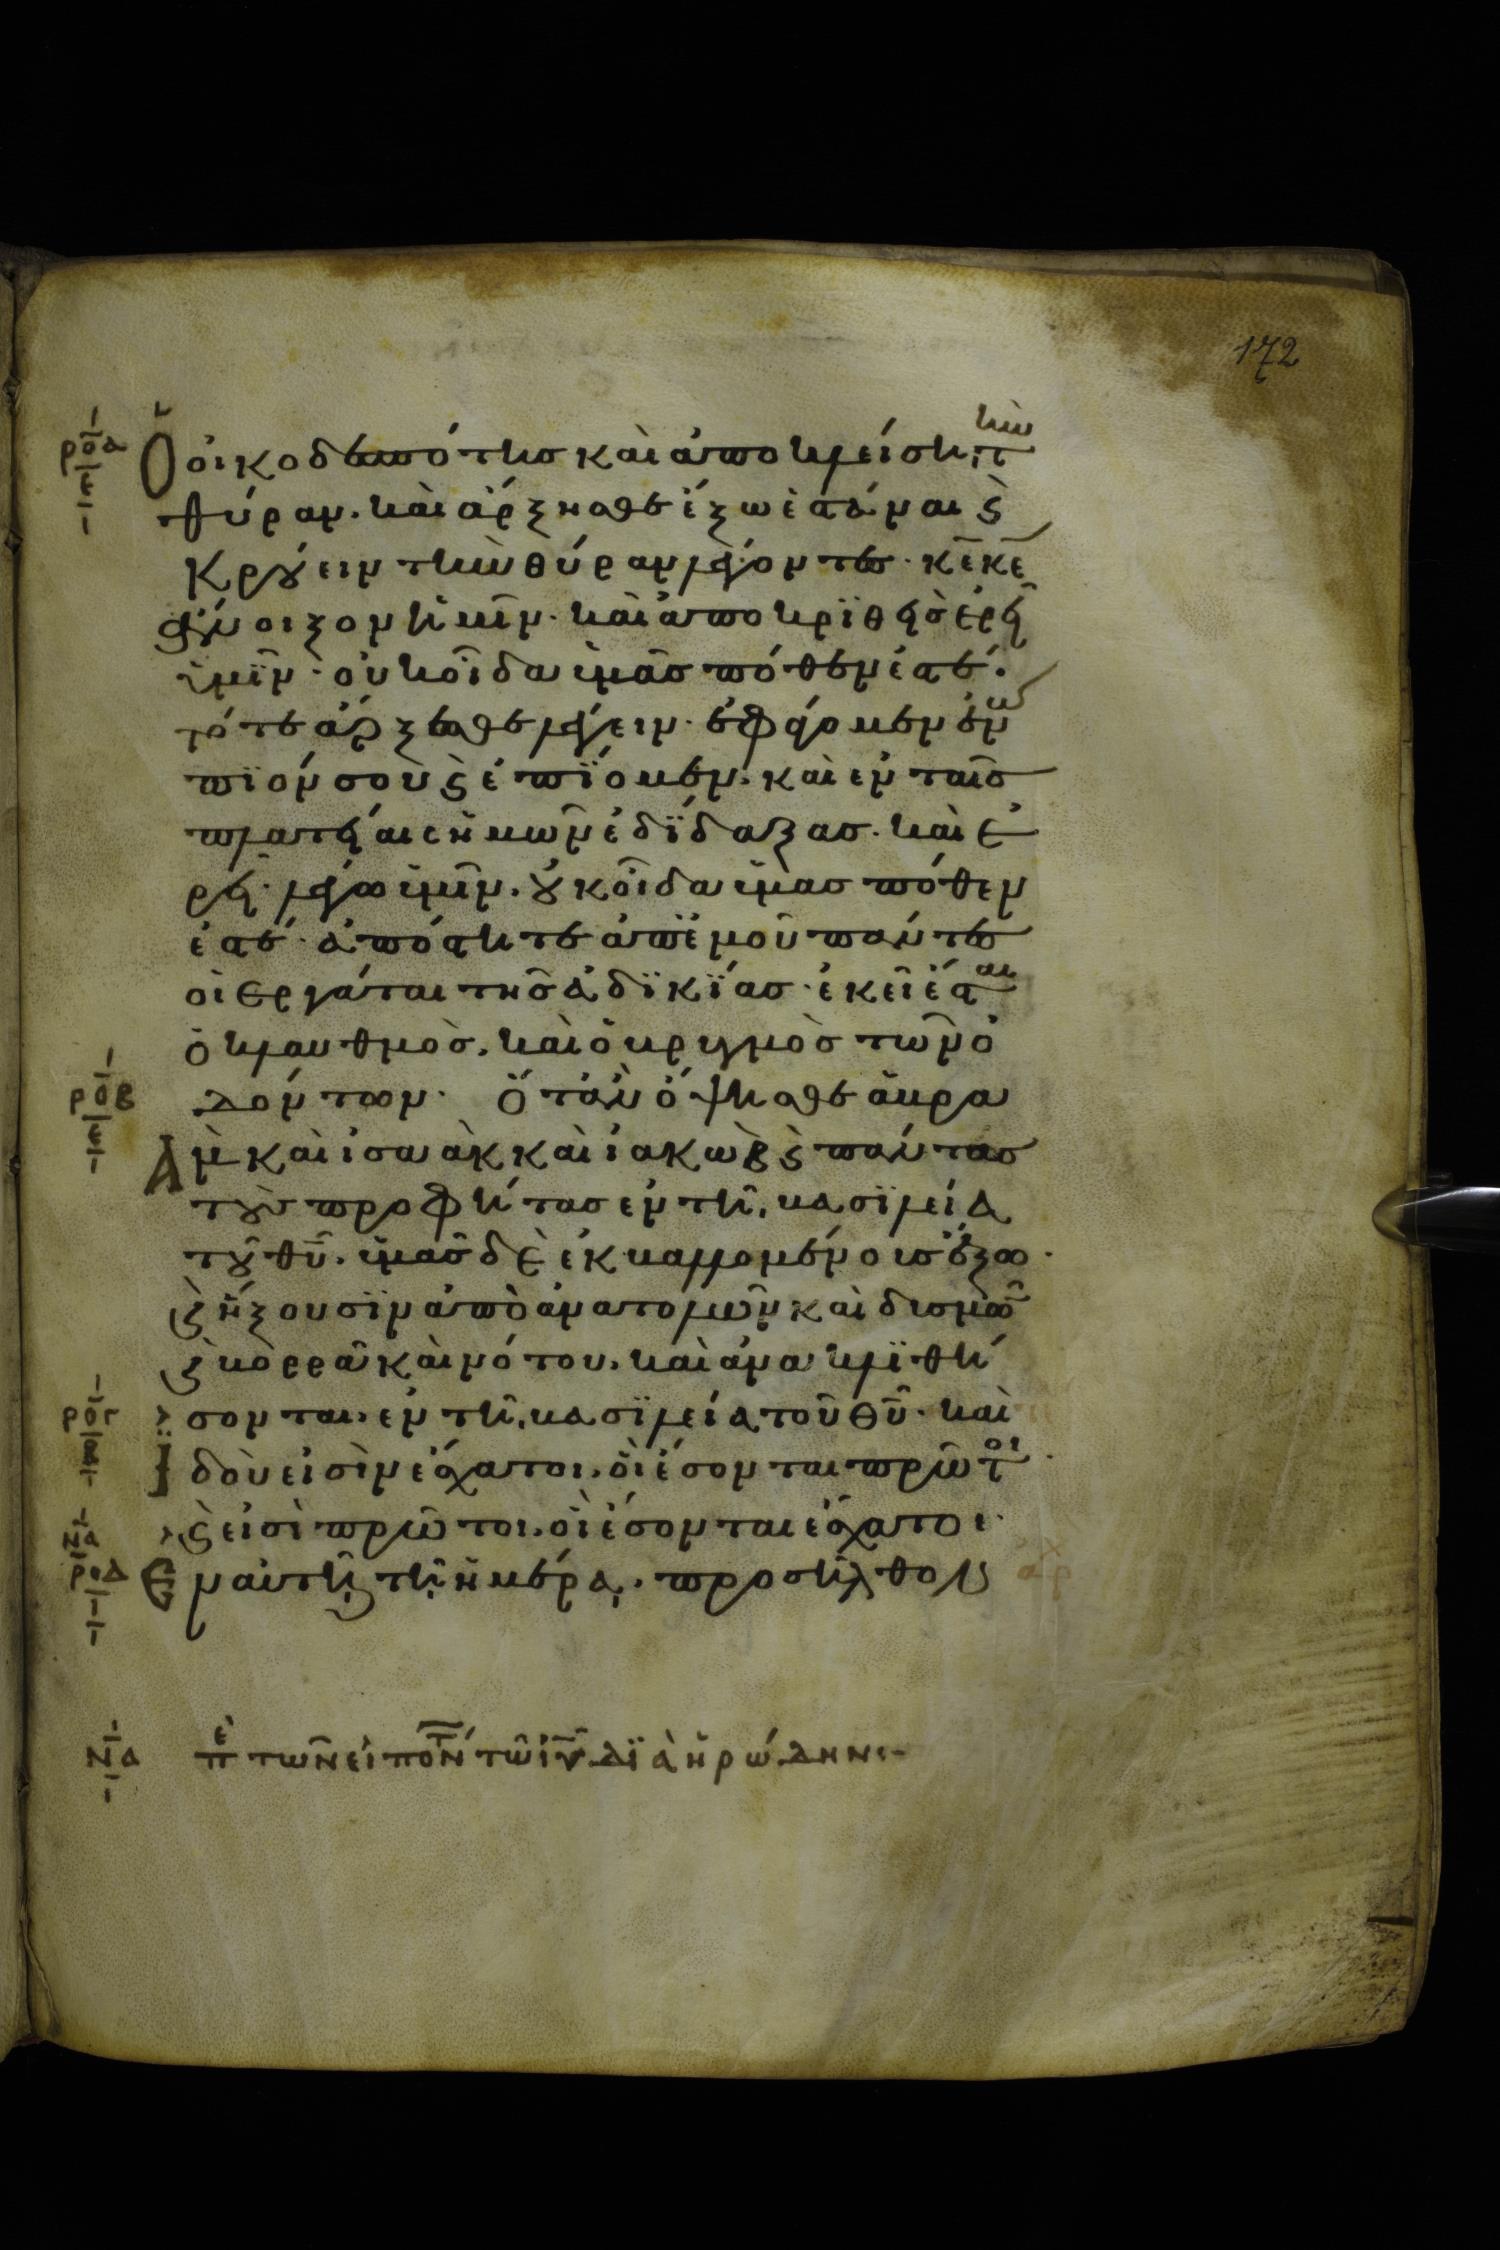 172
ροα
ε
Ὁ οἰκοδεσπότης καὶ ἀποκλείση τὴν
θύραν. καὶ ἄρξησθε ἔξω ἑστάναι ϗ
κρούειν τὴν θύραν λέγοντες· κ̅ε̅ κ̅ε̅
ἄνοιξον ἡμῖν· καὶ ἀποκριθεὶς ἐρεῖ
ὑμῖν· οὐκ οἶδα ὑμᾶς πόθεν ἐστέ·
τότε ἄρξεσθε λέγειν· ἐφάγομεν ἐνώ
πϊόν σου ϗ ἐπΐομεν. καὶ ἐν ταῖς
πλατείαις ἡμῶν ἐδΐδαξας. καὶ ἐ
ρεῖ· λέγω ὑμῖν. οὐκ οἶδα ὑμᾶς πόθεν
ἐστέ· ἀπόστητε ἀπ' ἐμοῦ πάντες
οἱ ἐργάται τῆς ἀδϊκΐας· ἐκεῖ ἔσται
ὁ κλαυθμὸς. καὶ ὁ βρυγμὸς τῶν ὀ
ροβ
ε
δόντων· ὅταν ὄψησθε ἄβρα
ὰμ καὶ ἰσαὰκ καὶ ἰακὼβ ϗ πάντας
τοὺς προφήτας ἐν τῆ βασϊλεία
τοῦ θ̅υ̅. ὑμᾶς δὲ ἐκβαλλομένους ἔξω·
ϗ ἥξουσϊν ἀπὸ ἀνατολῶν καὶ δυσμῶν
ϗ βορρᾶ καὶ νότου. καὶ ἀνακλϊθή
ρογ
σονται ἐν τῆ βασϊλεία τοῦ θ̅υ̅. καὶ ἰ
δοὺ εἰσὶν ἔσχατοι. οἳ ἔσονται πρῶτοι·
ϗ εἰσὶ πρῶτοι. οἳ ἔσονται ἔσχατοι·
να
ροδ
ι
Ἐν αὐτῆ τῆ ἡμέρα. προσῆλθον
ἀρχ
να περὶ τῶν εἰπόντων τῶ ἰ̅υ̅ δϊὰ ἡρώδην